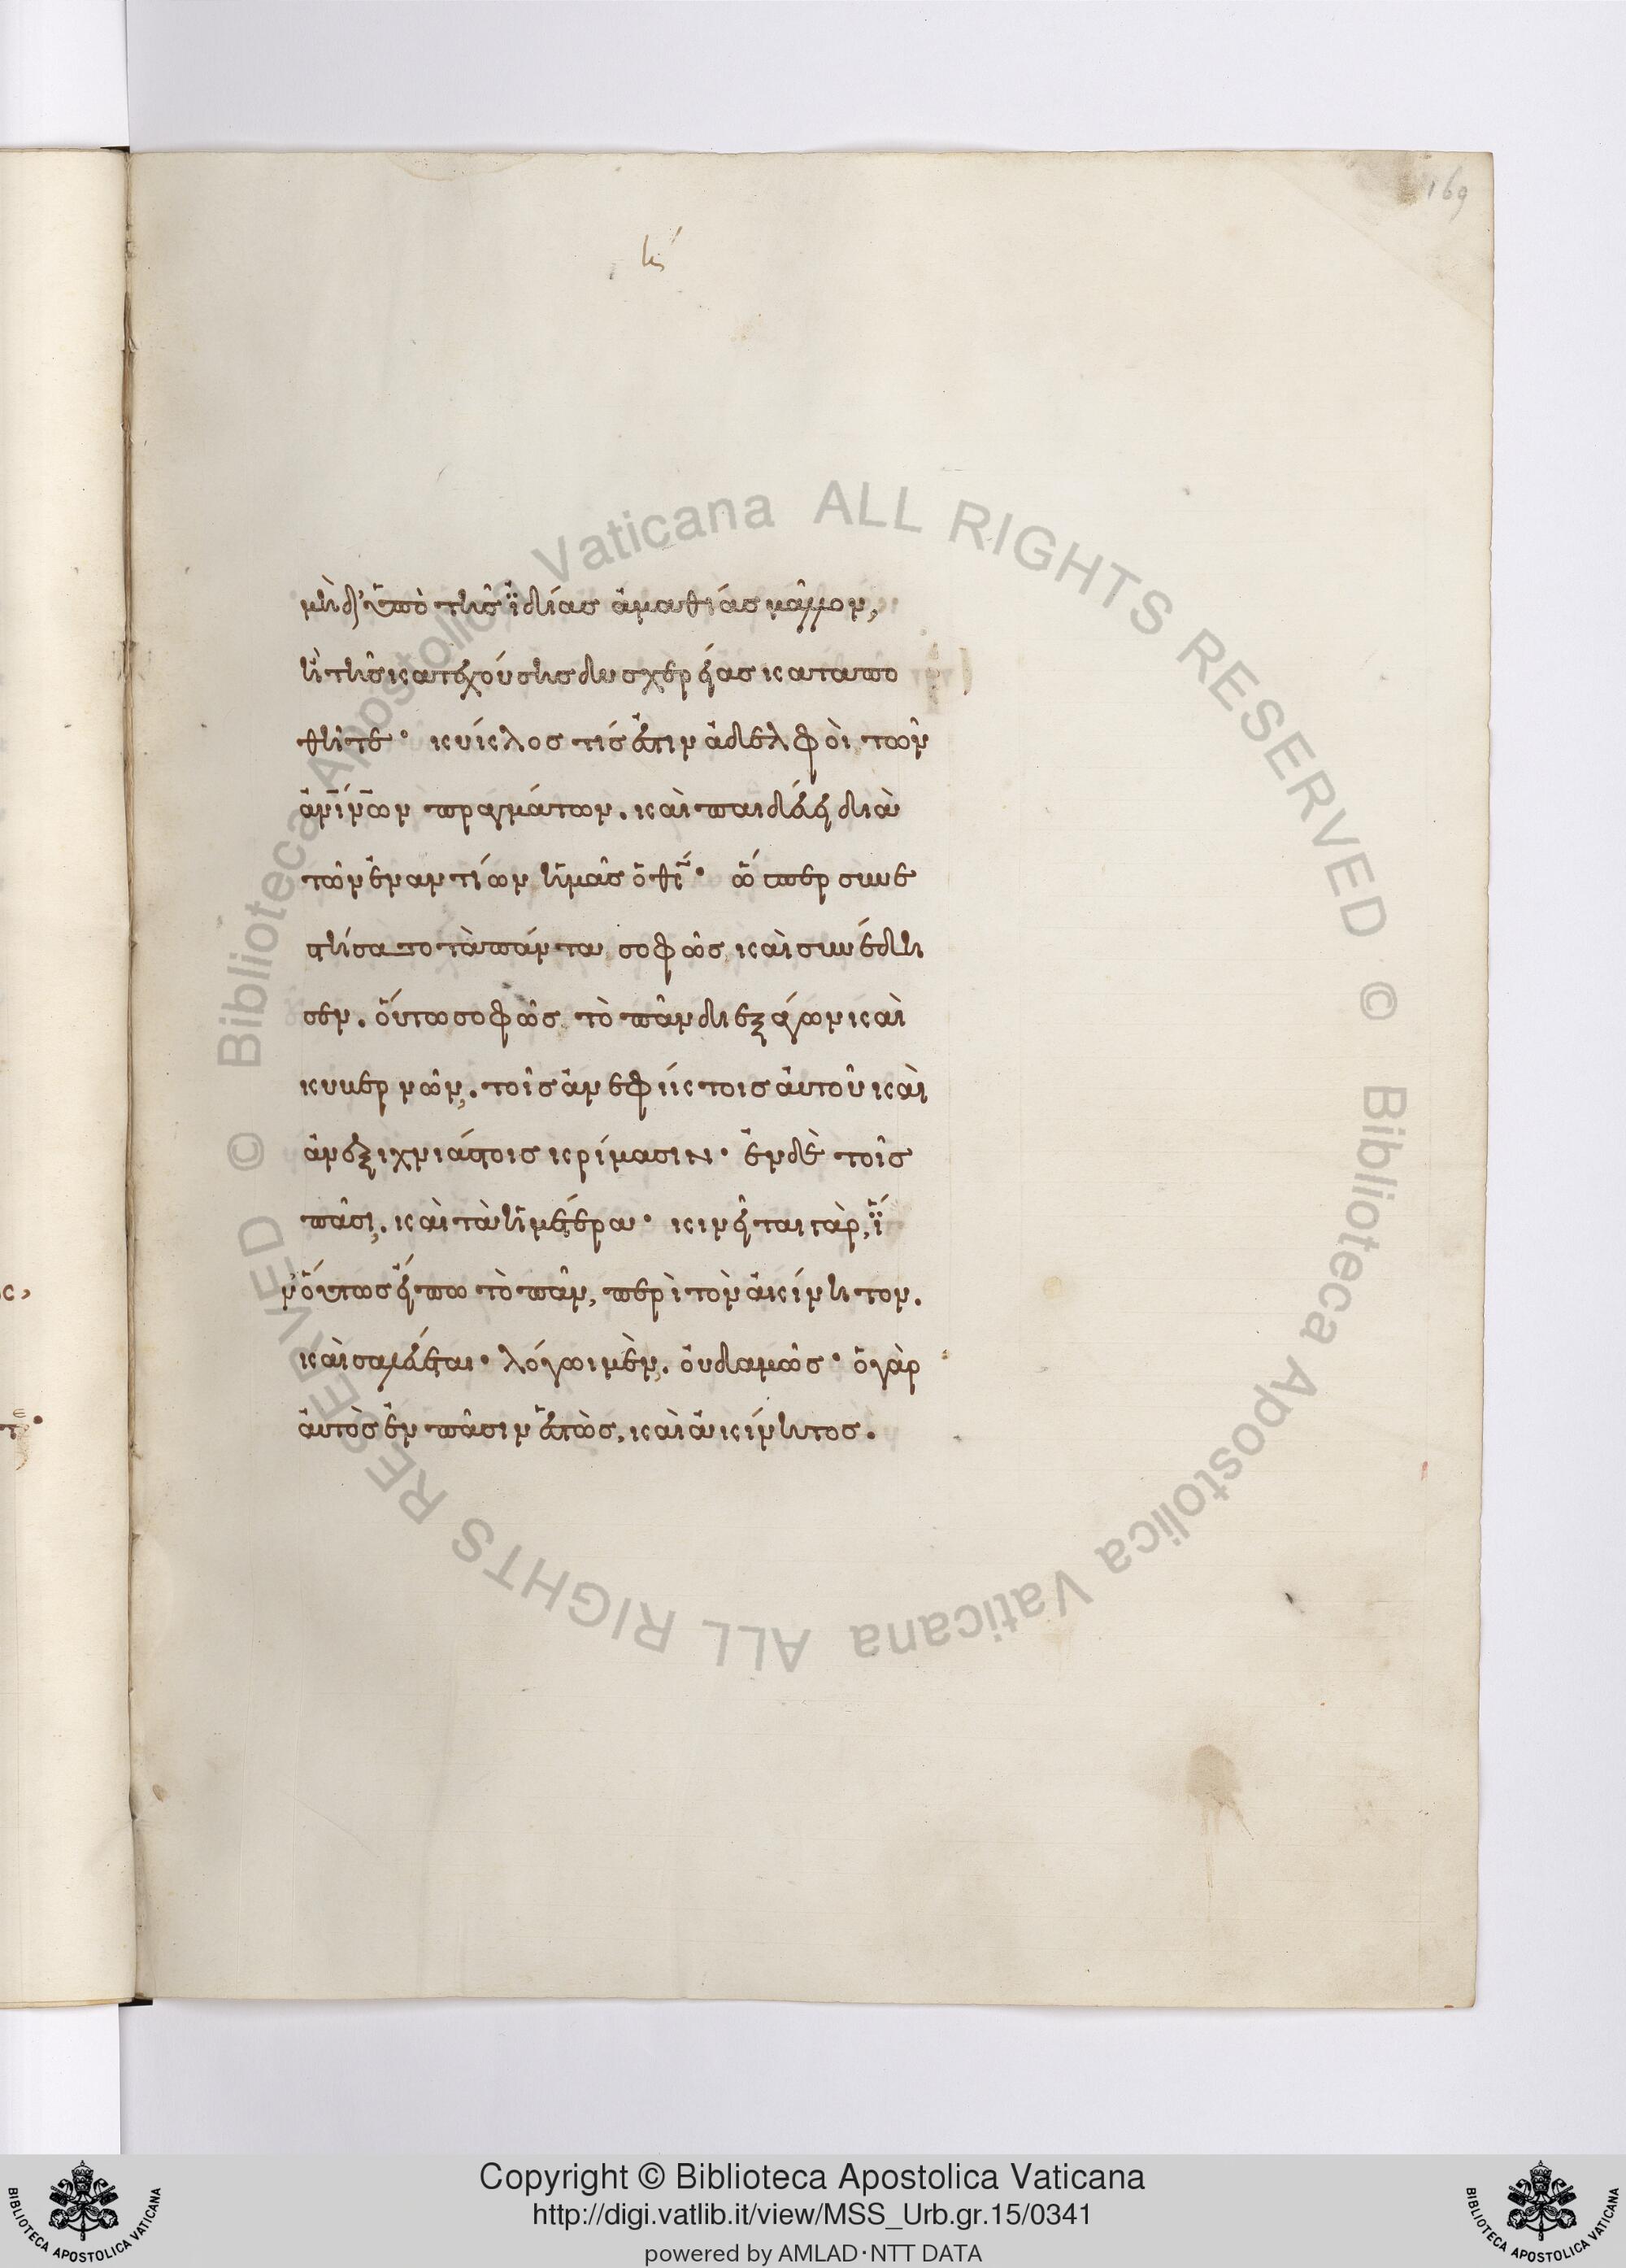 169
μὴ δ' ὑπὸ τῆς ϊδίας ἀμαθίας μᾶλλον,
ἢ τῆς κατεχούσης δυσχερείας καταπο
θῆτε· κύκλος τίς ἐστιν ἀδελφοὶ τῶν
ἀν̅ι̅ν̅ων πραγμάτων. καὶ παιδεύει διὰ
τῶν ἐναντίων ἡμᾶς ὁ θ̅ς̅· ὥσπερ συνε
στήσατο τὰ πάντα σοφῶς, καὶ συνέδη
σεν. οὕτω σοφῶς τὸ πᾶν διεξάγων καὶ
κυβερνῶν,. τοῖς ἀνεφίκτοις αὐτοῦ καὶ
ἀνεξιχνιάστοις κρίμασιν· ἐν δὲ τοῖς
πᾶσι,. καὶ τὰ ἡμέτερα· κινεῖται γὰρ, ϊ
ν' οὕτως εἴπω τὸ πᾶν, περὶ τὸν ἀκίνητον.
καὶ σαλεύεται· λόγωι μὲν,. οὐδαμῶς· ὁ γὰρ
αὐτὸς ἐν πᾶσιν ἑστὼς, καὶ ἀκίνητος.
© Biblioteca Apostolica Vaticana ALL RIGHTS RESERVED
© Biblioteca Apostolica Vaticana ALL RIGHTS RESERVED
Copyright © Biblioteca Apostolica Vaticana
http://digi.vatlib.it/view/MSS_Urb.gr.15/0341
powered by AMLAD·NTT DATA
BIBLIOTECA APOSTOLICA VATICANA
BIBLIOTECA APOSTOLICA VATICANA